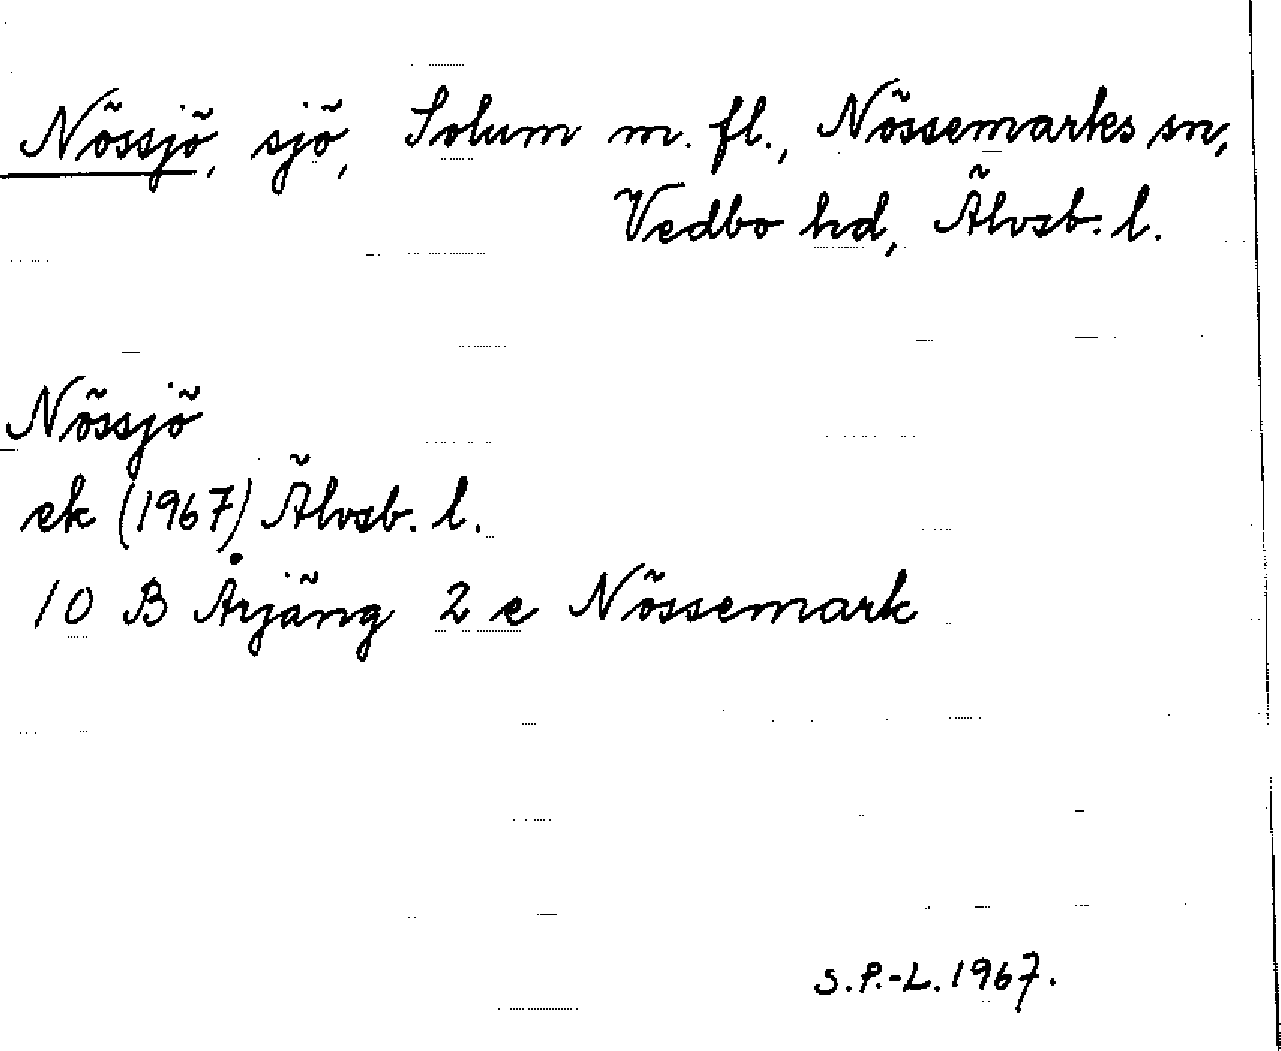 Nössjö, sjö, Solum m. fl., Nössemarks sn,
Vedbo hd, Älvsb. l.
Nössjö
ek (1967) Älvsb. l.
10 B Årjäng 2 e Nössemark
S.P.-L. 1967.